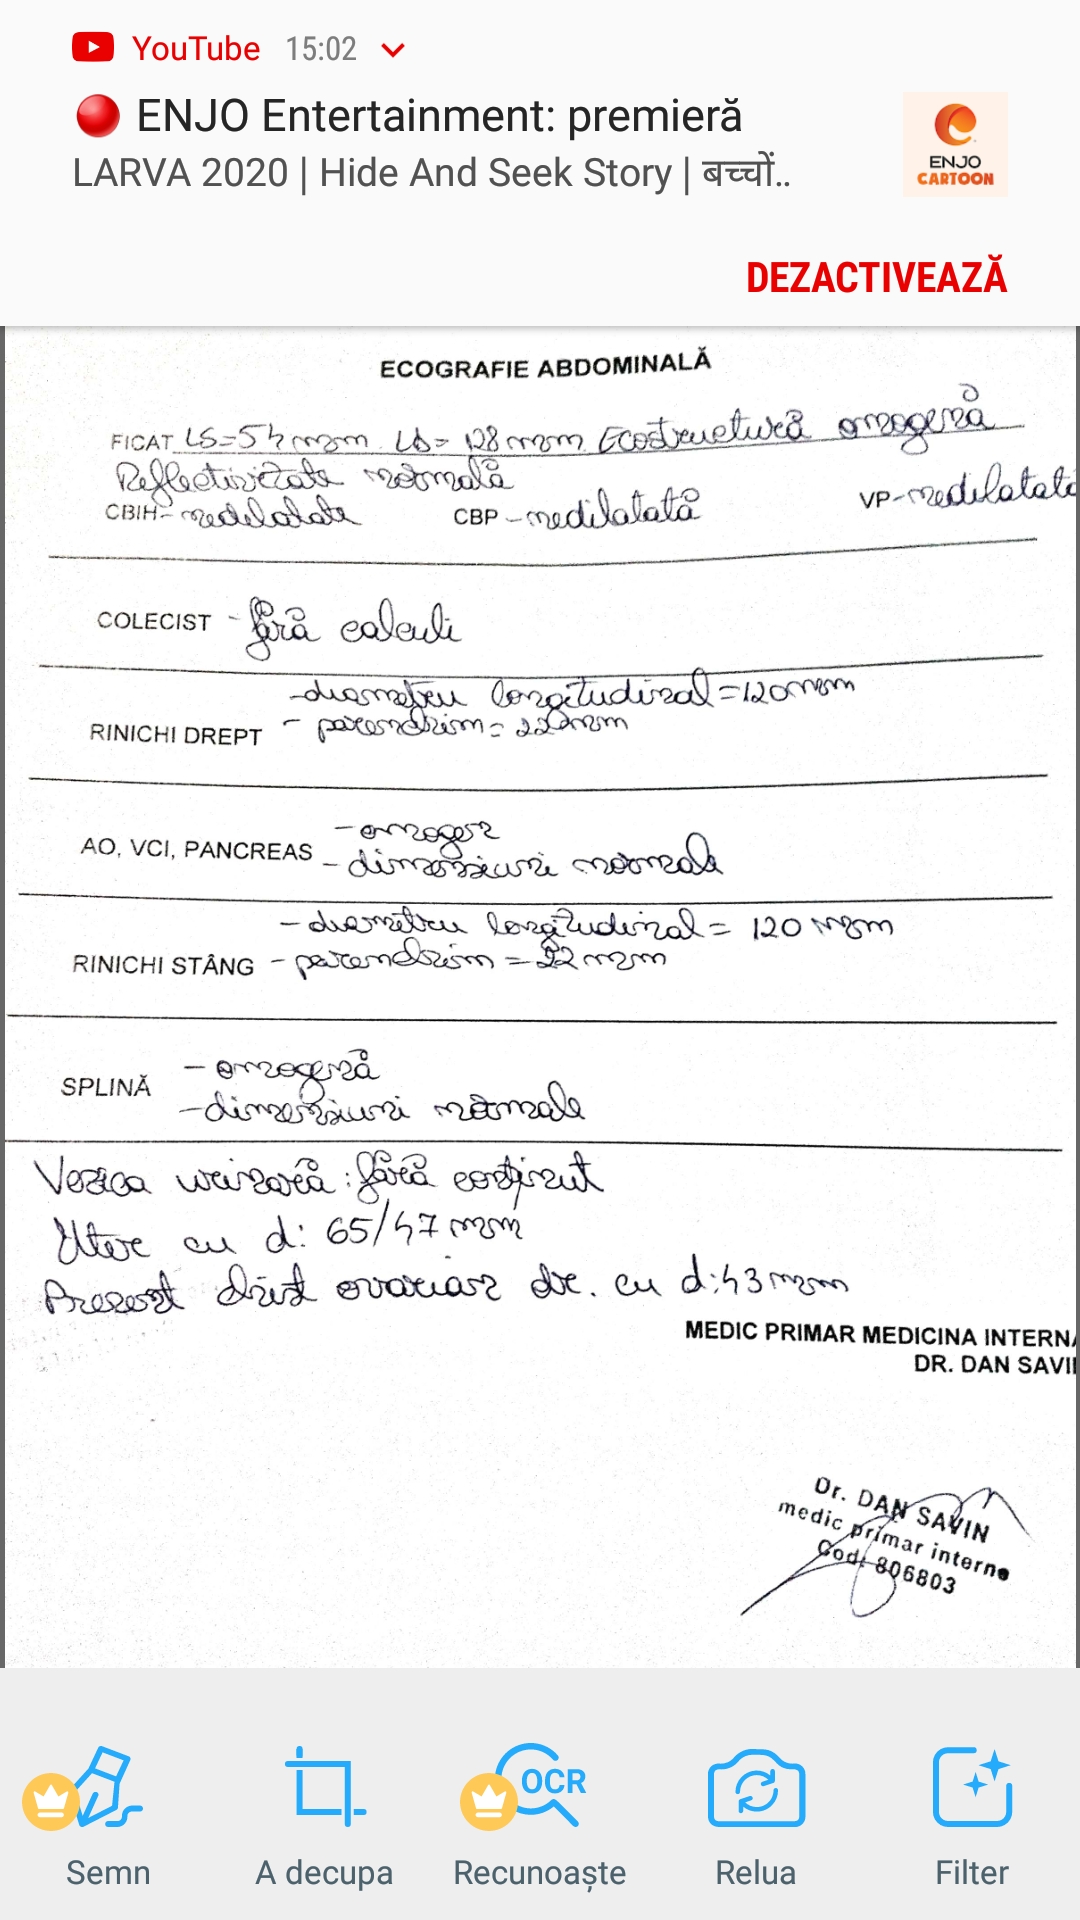 YouTube 15:02
ENJO Entertainment: premieră
LARVA 2020 | Hide And Seek Story | बच्चों..
ENJO
CARTOON
DEZACTIVEAZĂ
ECOGRAFIE ABDOMINALĂ
FICAT LS=54 mm. LD= 128 mm. Ecostructură omogenă
Reflectivitate normală
CBIH- nedilatate CBP - nedilatată VP- nedilatată
COLECIST - fără calculi
- diametru longitudinal = 120 mm
RINICHI DREPT - parenchim = 22 mm
- omogen
AO, VCI, PANCREAS - dimensiuni normale
- diametru longitudinal = 120 mm
RINICHI STÂNG - parenchim = 22 mm
- omogenă
SPLINĂ
- dimensiuni normale
Vezica urinară : fără conținut
Uter cu d: 65/47 mm
Prezent chist ovarian dr. cu d: 43 mm
MEDIC PRIMAR MEDICINA INTERNA
DR. DAN SAVI
Dr. DAN SAVIN
medic primar interne
Cod: 806803
OCR
Semn A decupa Recunoaște Relua Filter